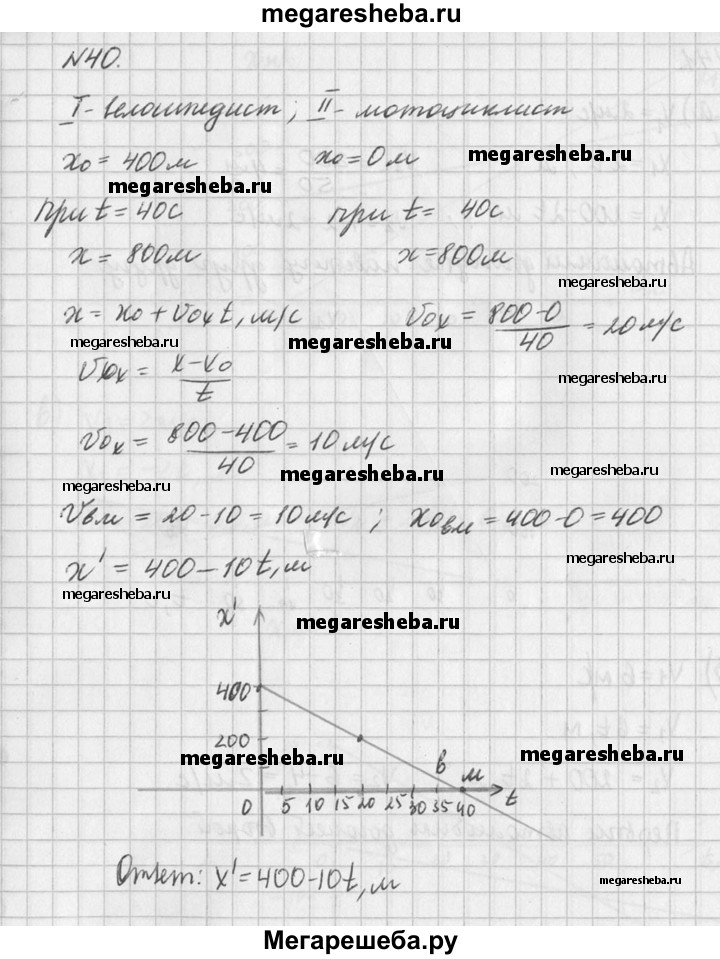 megaresheba.ru
N40.
I - велосипедист; II - мотоциклист
x₀ = 400м x₀ = 0м megaresheba.ru
megaresheba.ru
при t = 40с при t = 40с
x = 800м x = 800м
megaresheba.ru
x = x₀ + v₀ₓt, м/с v₀ₓ = (800-0)/40 = 20 м/с
megaresheba.ru megaresheba.ru
v₀ₓ = (x-x₀)/t
megaresheba.ru
v₀ₓ = (800-400)/40 = 10 м/с
megaresheba.ru
megaresheba.ru
vвм = 20-10 = 10 м/с ; x₀вм = 400-0 = 400
megaresheba.ru
x' = 400-10t, м
megaresheba.ru
x' megaresheba.ru
400
200
megaresheba.ru megaresheba.ru
в м
0 5 10 15 20 25 30 35 40 t
Ответ: x' = 400-10t, м
megaresheba.ru
Мегарешеба.ру